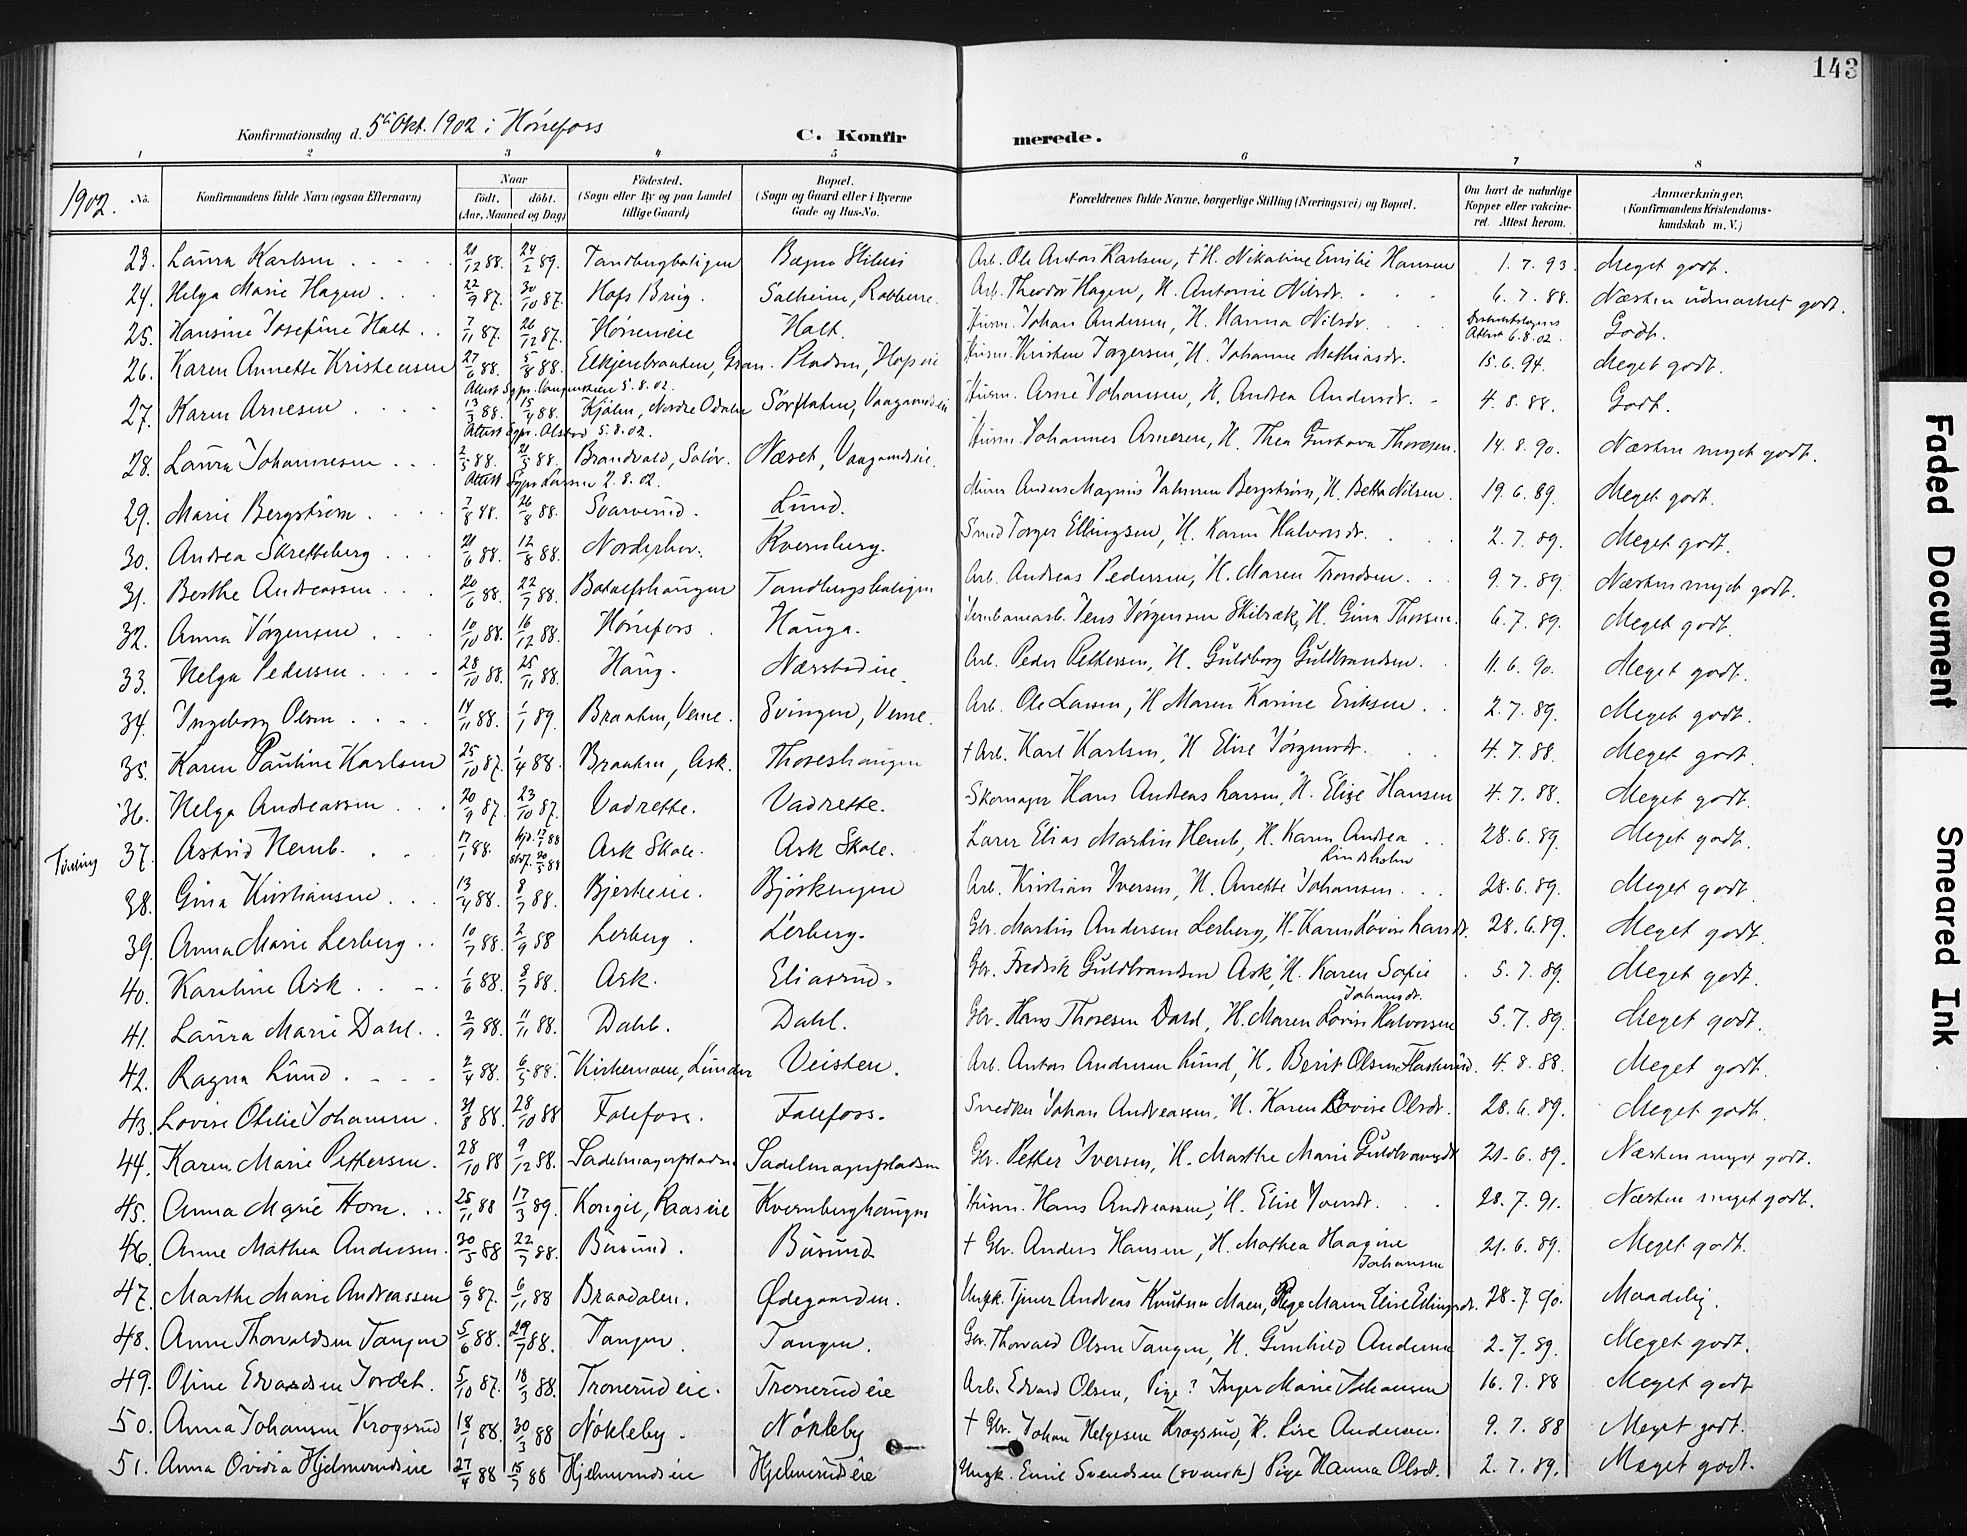 143
Konfirmationsdag d. 5te Okt. 1902 i Hønefoss
C. Konfirmerede.
1 2 3 4 5 6 7 8
1902. No. Konfirmandens fulde Navn (ogsaa Efternavn) Naar født. døbt. (Aar, Maaned og Dag) Fødested. (Sogn eller By og paa Landet tillige Gaard) Bopæl. (Sogn og Gaard eller i Byerne Gade og Hus-No. Forældrenes fulde Navne, borgerlige Stilling (Næringsvei) og Bopæl. Om havt de naturlige Kopper eller vakcineret. Attest herom. Anmærkninger, (Konfirmandens Kristendomskundskab m. V.)
23. Laura Karlsen 21/12 88. 24/2 89. Tandbergbøligen Bægna Sliberi Arb. Ole Anton Karlsen, † H. Nikoline Emilie Hansen 1.7.93. Meget godt.
24. Helga Marie Hagen 22/9 87. 30/10 87. Hofs Brug. Solheim, Arb. Theodor Hagen, H. Antonie Nilsdr. 6.7.88. Næsten udmærket godt.
25. Hansine Josefine Holt 7/11 87. 26/12 87. Høneneie Holt. Husm. Johan Andersen, H. Hanna Nilsdr. Distriktslægens Attest 6.8.02. Godt.
26. Karen Annette Kristensen 27/6 88. 5/8 88. Elkjerebraaten, Gran. Pladsen, Hofseie Husm. Kristen Torgersen, H. Johanne Mathiasdr. 15.6.94. Meget godt.
Attest Sgpr. 5.8.02.
27. Karen Arnesen 13/3 88. 15/4 88. Kjølen, Nordre Odalen Sørflaten, Vaagaardseie Husm. Arne Johansen, H. Andrea Andersdr. 4.8.88. Godt.
Attest Sgpr. Alstad 5.8.02.
28. Laura Johannesen 2/5 88. 21/5 88. Brandvold, Solør. Næset, Vaagaardseie. Husm. Johannes Arnesen, H. Thea Gustava Thoresen. 14.8.90. Næsten meget godt.
Attest Sgpr. Larsen 2.8.02.
29. Marie Bergstrøm 7/8 88. 26/8 88. Svarverud. Lund. Murer Anders Magnus Johnsen Bergstrøm, H. Betha Nilsen. 19.6.89. Meget godt.
30. Andrea Skretteberg 21/6 88. 12/8 88. Norderhov. Kvernberg. Smed Torger Ellingsen, H. Karen Halvorsdr. 2.7.89. Meget godt.
31. Berthe Andreassen 20/6 88. 22/7 88. Botolfshaugen Tandbergsbøligen Arb. Andreas Pedersen, H. Maren Trondsen. 9.7.89. Næsten meget godt.
32. Anna Jørgensen 10/10 88. 16/12 88. Hønefos. Hauga. Jernbanearb. Jens Jørgensen Skibræk, H. Gina Thorsen. 6.7.89. Meget godt.
33. Helga Pedersen 28/10 88. 25/11 88. Haug. Næsstadeie. Arb. Peder Pettersen, H. Guldborg Guldbrandsen. 11.6.90. Meget godt.
34. Ingeborg Olsen 14/11 88. 1/1 89. Braaten, Veme. Svingen, Veme. Arb. Ole Larsen, H. Maren Karine Eriksen. 2.7.89. Meget godt.
35. Karen Pauline Karlsen 25/10 87. 1/4 88. Braaten, Ask. Thoreshaugen † Arb. Karl Karlsen, H. Elise Jørgensdr. 4.7.88. Meget godt.
36. Helga Andreassen 20/9 87. 23/10 87. Vadrette. Vadrette. Skomager Hans Andreas Larsen, H. Elise Hansen 4.7.88. Meget godt.
Tvilling 37. Astrid Hemb. 17/1 88. Hjd. 17/1 88 stedf. 20/5 88 Ask Skole. Ask Skole. Lærer Elias Martin Hemb, H. Karen Andrea Lindholm 28.6.89. Meget godt.
38. Gina Kristiansen 13/4 88. 8/7 88. Bjerkeeie. Bjørkengen Arb. Kristian Iversen, H. Anette Johansen. 28.6.89. Meget godt.
39. Anna Marie Lerberg 10/7 88. 2/9 88 Lerberg. Lerberg. Gbr. Martin Andersen Lerberg, H. Karen Lovise Larsdr. 28.6.89. Meget godt.
40. Karoline Ask 1/6 88. 8/7 88. Ask. Eliasrud. Gbr. Fredrik Guldbrandsen Ask, H. Karen Sofie Johansdr. 5.7.89. Meget godt.
41. Laura Marie Dahl. 2/9 88. 11/11 88. Dahl. Dahl. Gbr. Hans Thoresen Dahl, H. Maren Lovise Halvorsen 5.7.89. Meget godt.
42. Ragna Lund. 2/4 88. 6/5 88. Kirkemoen, Lunder Veisten. Arb. Anton Andersen Lund, H. Berit Olsen 4.8.88. Meget godt.
43. Lovise Otilie Johansen. 31/8 88. 28/10 88 Folefoss. Folefoss. Snedker Johan Andreassen, H. Karen Lovise Olsdr. 28.6.89. Meget godt.
44. Karen Marie Pettersen. 28/10 88 9/12 88. Sadelmagerpladsen Sadelmagerpladsen Gbr. Petter Iversen, H. Marthe Marie Guldbrandsdr 21.6.89. Næsten meget godt.
45. Anna Marie Horn. 25/11 88 17/3 89. Kongie, Raaseie Kvernberghaugen Husm. Hans Andreassen, H. Elise Iversdr. 28.7.91. Næsten meget godt.
46. Anne Mathea Andersen. 30/5 88 22/7 88. Busund. Busund † Gbr. Anders Hansen, H. Mathea Haagine Johansen 21.6.89. Meget godt.
47. Marthe Marie Andreassen 6/9 87. 6/11 88 Braadalen. Ødegaarden. Ungk. Tjener Andreas Knutsen Moen, Pige Maren Elise Ellingsdr. 28.7.90. Maadelig.
48. Anne Thorvaldsen Tangen 5/6 88. 29/7 88. Tangen. Tangen. Gbr. Thorvald Olsen Tangen, H. Gunhild Andersen 2.7.89. Meget godt.
49. Oline Edvardsen Jordet. 5/10 87. 18/3 88. Tronerudeie. Tronerudeie Arb. Edvard Olsen, Pige? Inger Marie Johansen 16.7.88 Meget godt
50. Anna Johansen Krogsrud 18/1 88. 30/3 88 Nøkleby. Nøkleby † Gbr. Johan Helgesen Krogsrud, H. Lise Andersen. 9.7.88 Meget godt.
51. Anna Ovidia Hjelmerudseie 27/4 88 15/7 88 Hjelmerudseie Hjelmerudseie Ungk. Emil Svendsen (svensk) Pige Hanna Olsdr. 2.7.89. Meget godt.
Faded Document
Smeared Ink